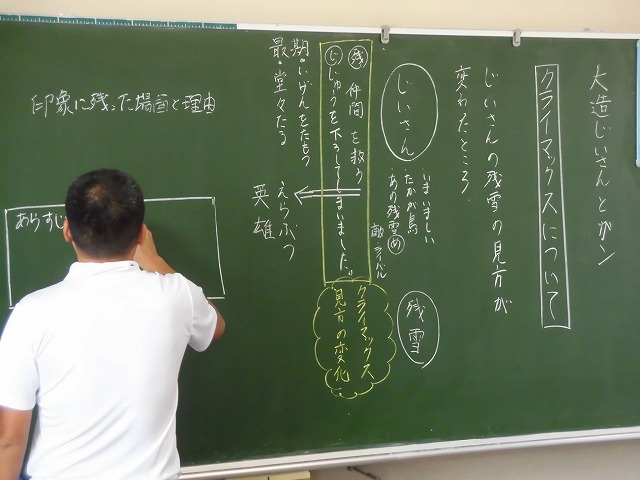 大造じいさんとガン
クライマックスについて
じいさんの残雪の見方が
変わったところ
じいさん
残雪
いまいましい
たかが鳥
あの残雪め
敵 ライバル
残 仲間を救う
じ じゅうを下ろしてしまいました。
クライマックス
見方の変化
最期・いげんをたもつ
・堂々たる
えらぶつ
英雄
印象に残った場面と理由
あらすじ